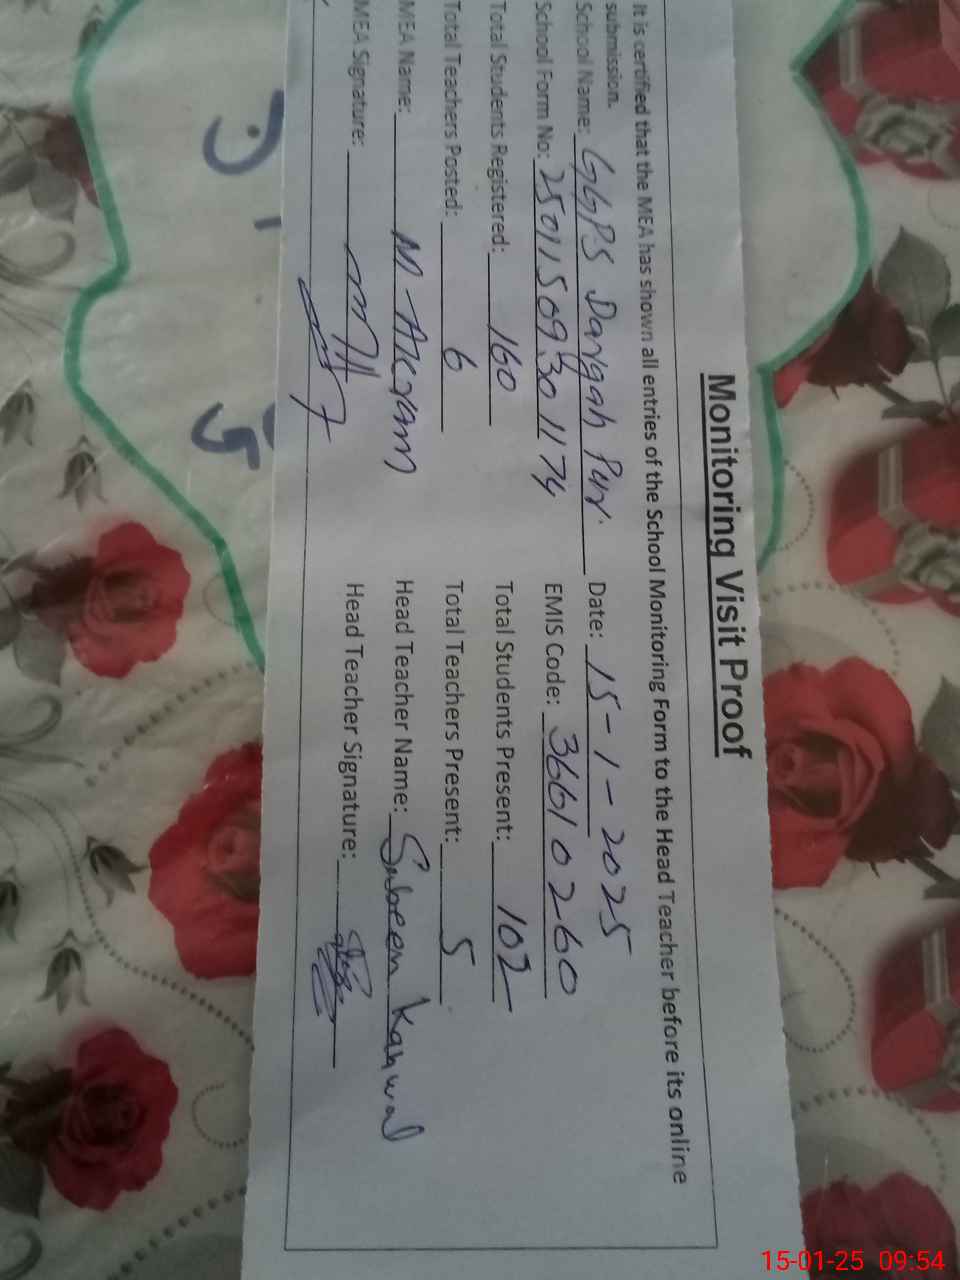 Monitoring Visit Proof
It is certified that the MEA has shown all entries of the School Monitoring Form to the Head Teacher before its online
submission.
School Name: GGPS Dargah Pur. Date: 15-1-2025
School Form No: 25011509301174 EMIS Code: 36610260
Total Students Registered: 160 Total Students Present: 102
Total Teachers Posted: 6 Total Teachers Present: 5
MEA Name: M Akram Head Teacher Name: Sabeen Kanwal
MEA Signature: Head Teacher Signature:
15-01-25 09:54